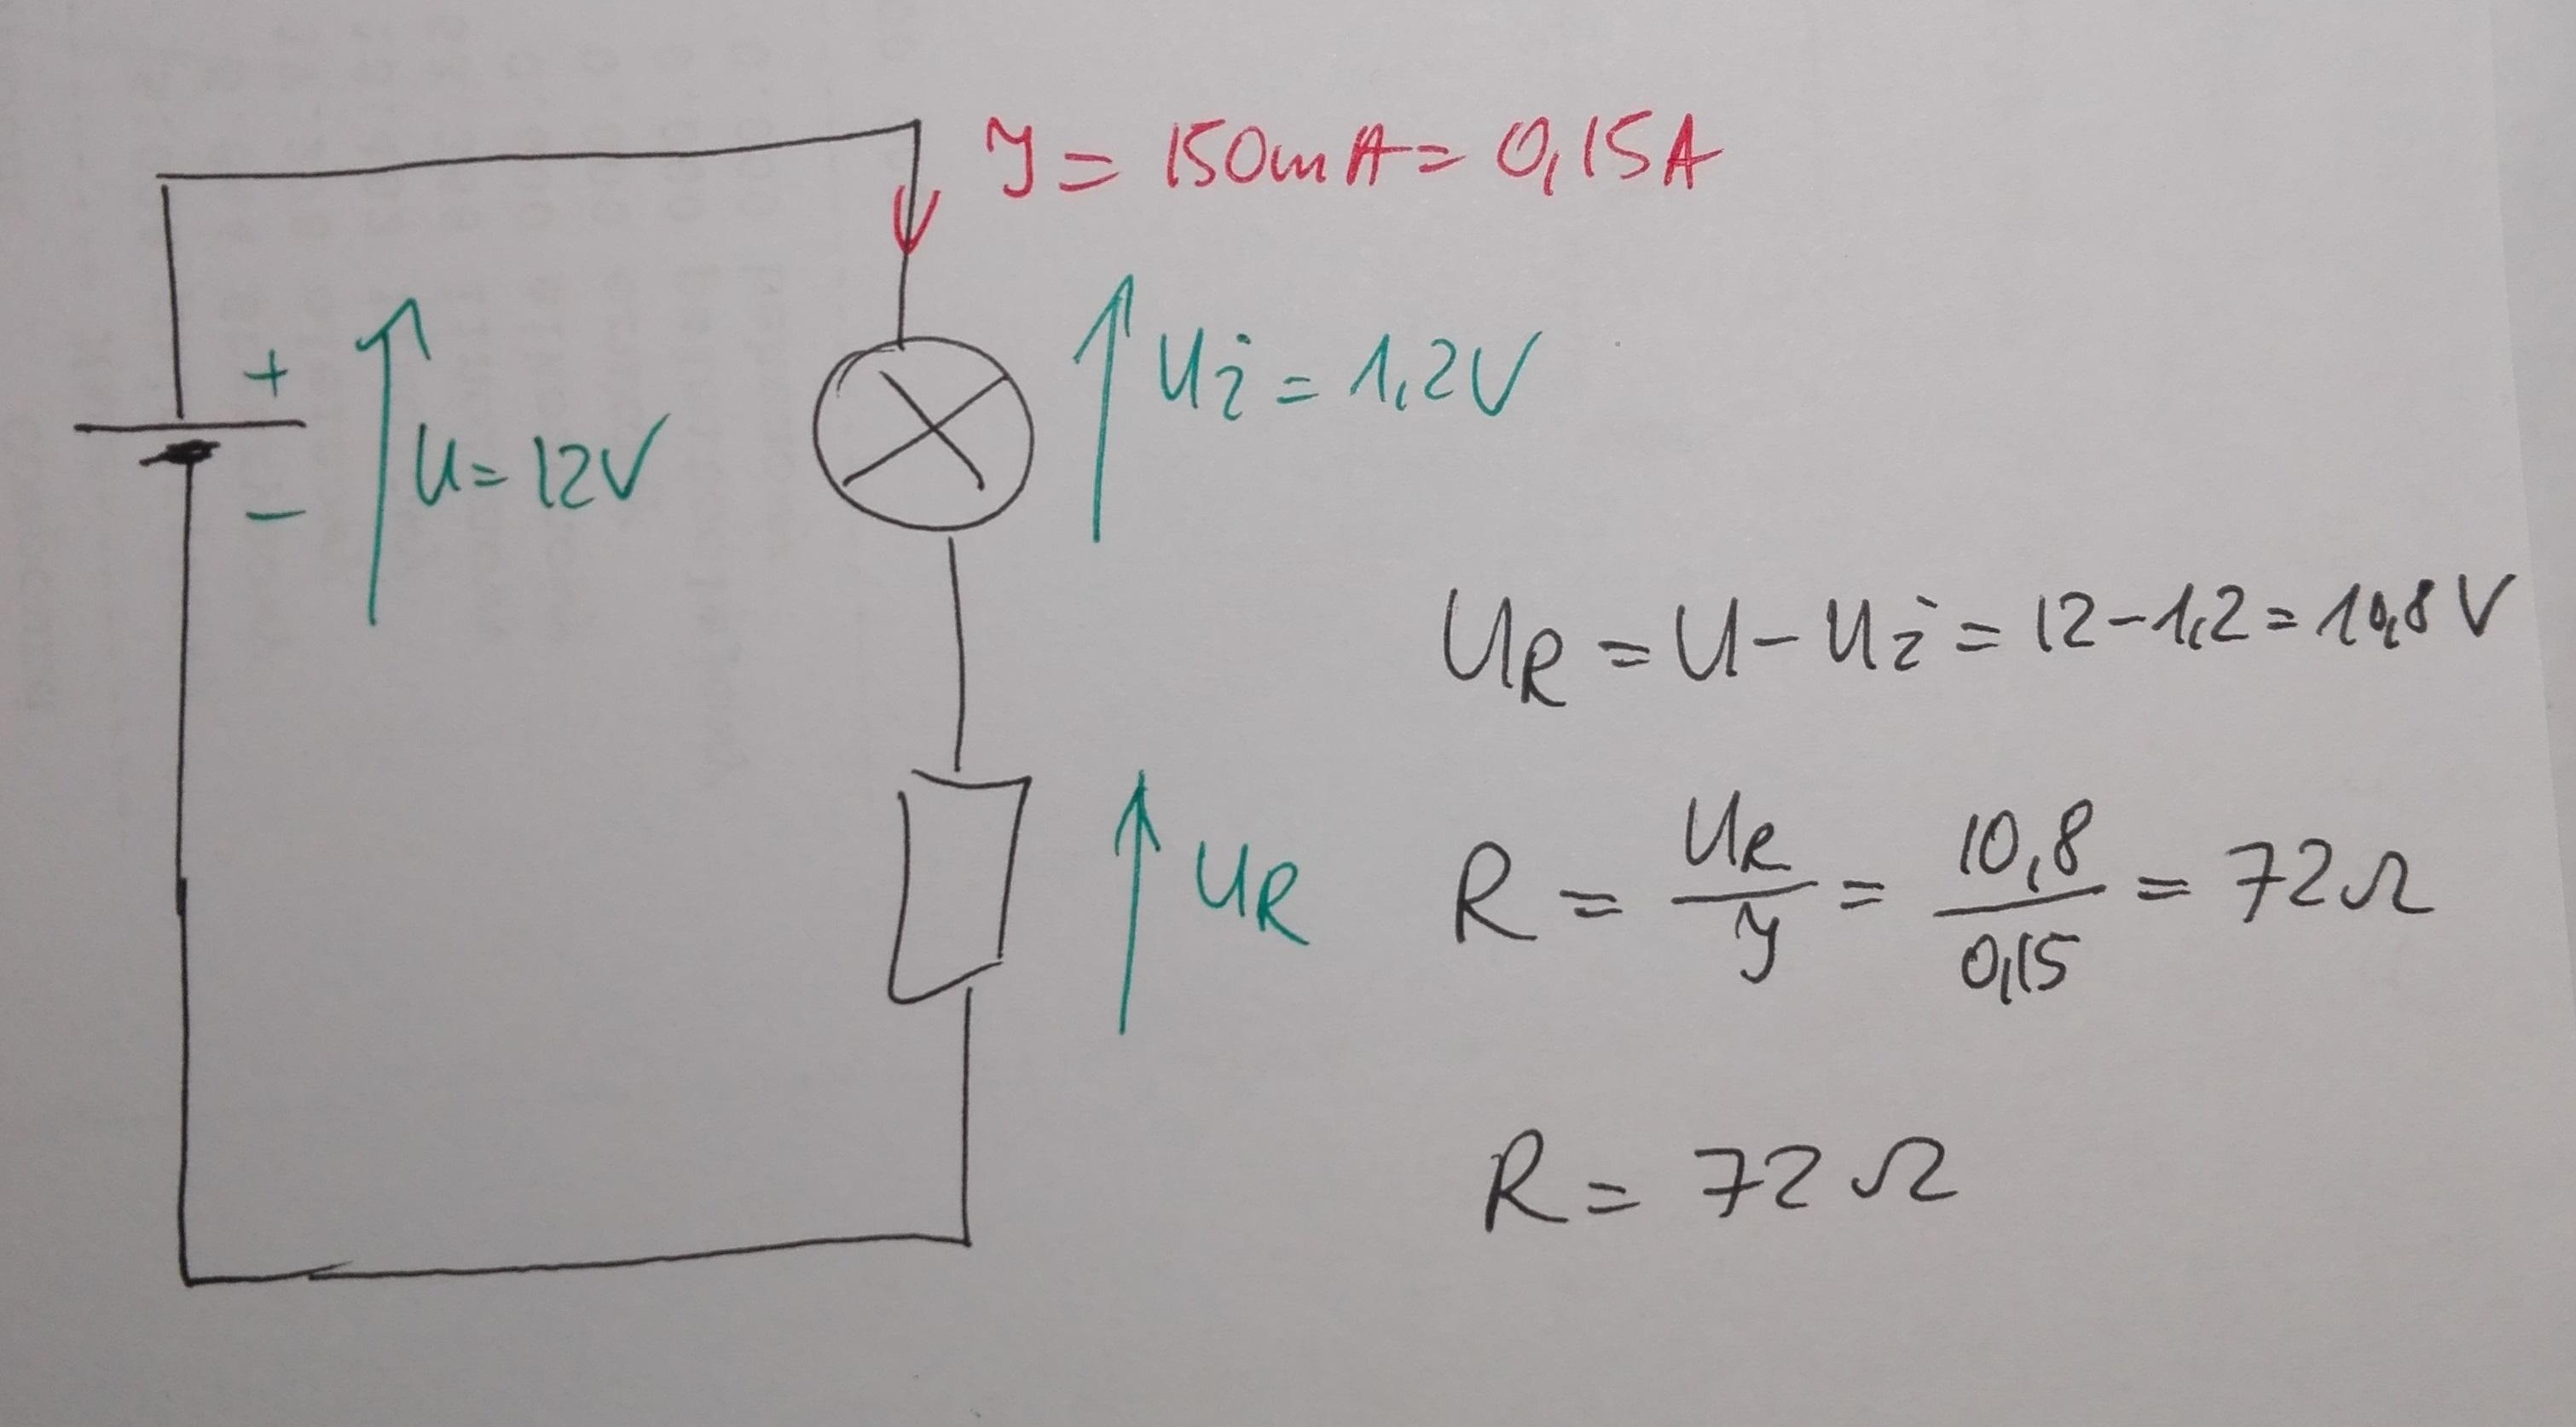 I = 150mA = 0,15A
+
U = 12V
−
Uż = 1,2V
UR = U − Uż = 12 − 1,2 = 10,8 V
UR
R = UR/I = 10,8/0,15 = 72 Ω
R = 72 Ω